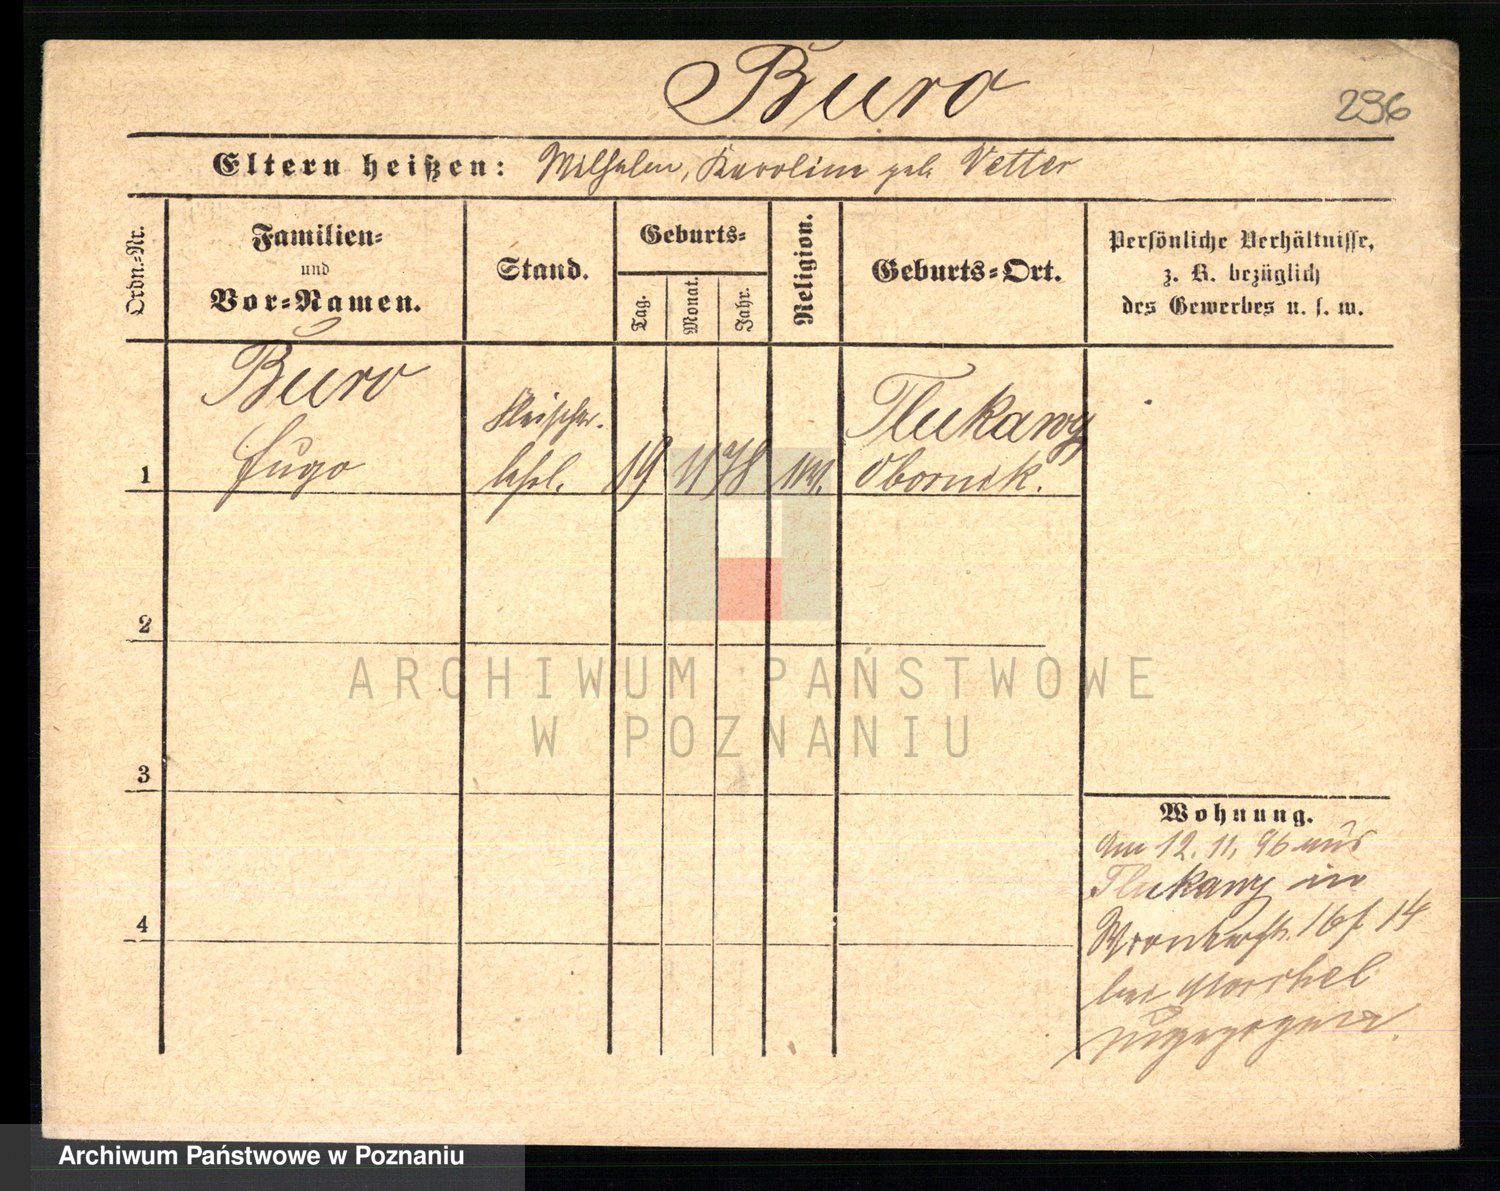 Buro
236
Eltern heißen: Wilhelm, Karoline geb. Vetter
Ordn.-Nr.
Familien-
und
Vor-Namen.
Stand.
Geburts-
Tag.
Monat.
Jahr.
Religion.
Geburts-Ort.
Persönliche Verhältnisse,
z. B. bezüglich
des Gewerbes u. s. w.
Buro
Hugo
Fleischer-
lehrl.
Tlukawy
Obornik.
1
19
11
78
2
3
4
Wohnung.
Am 12. 11. 96 aus
Tlukawy in
16 14
bei
zugezogen.
ARCHIWUM PAŃSTWOWE
W POZNANIU
Archiwum Państwowe w Poznaniu